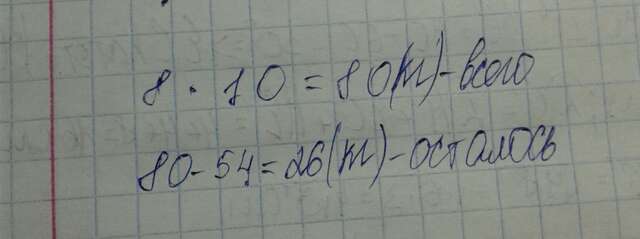 8 · 10 = 80(кг)-всего
80-54=26(кг)-осталось